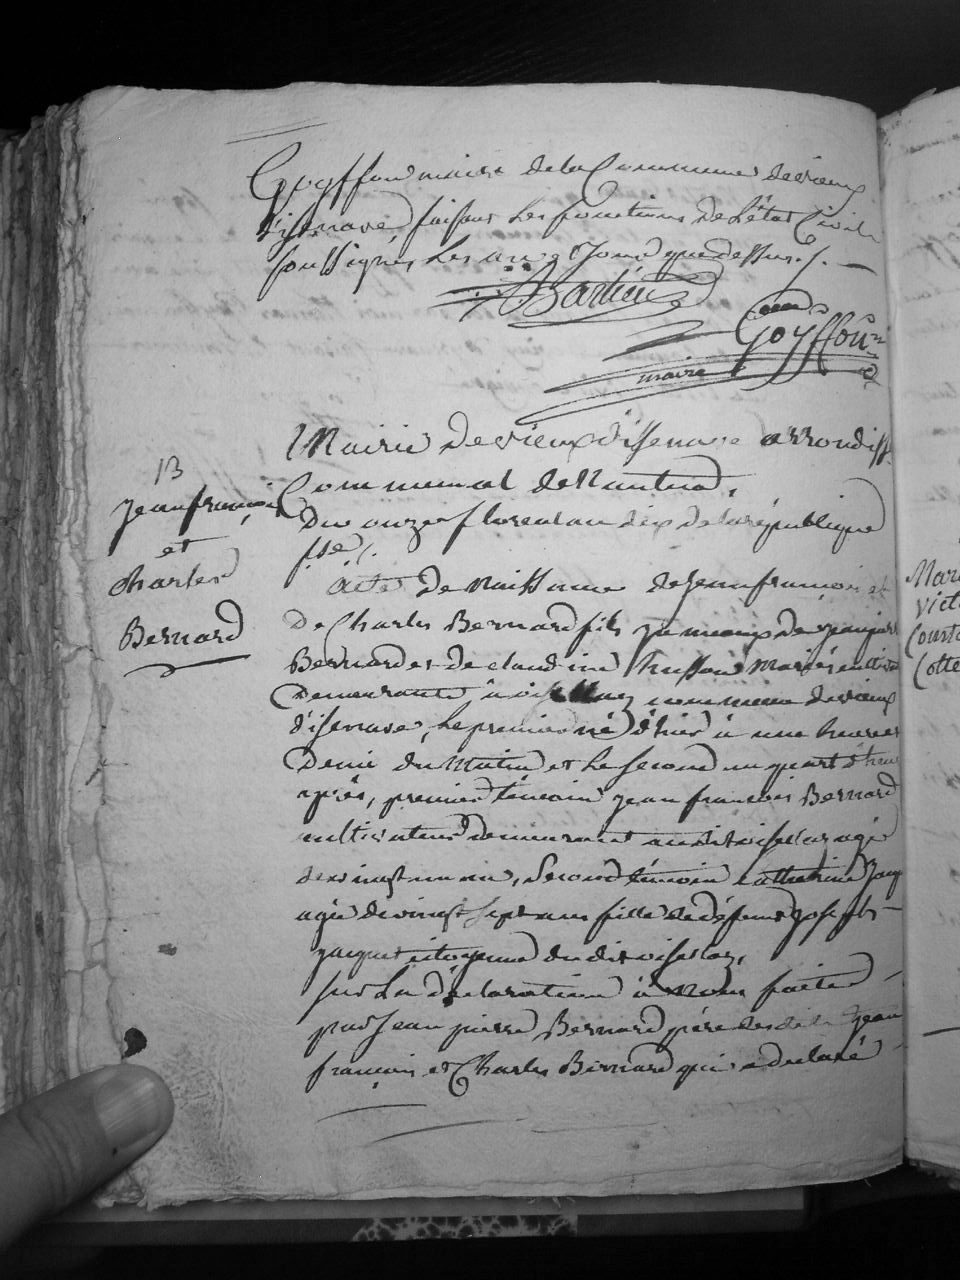 Goyffon maire de la Commune de vieux
d'isenave, faisant les fonctions de l'état Civil
soussignés les an et jour que dessus. /. —
Bartieu
Goyffon
maire
Mairie de vieux d'issenave arrondiss.
Communal de Nantua,
Du onze floreal an dix de la république
fse.
13
jean françois
et
charles
Bernard
Acte de Naissance de jean françois et
de Charles Bernard fils jumeaux de jean pierre
Bernard et de claudine mariés
Demeurants à commune de vieux
d'isenave, le premier né d'hier à une heure et
Demie du Matin et le second un quart d'heure
après, premier témoin jean françois Bernard
cultivateur demeurant audit agé
de, Second témoin Catherine
agée de vingt sept ans fille de défunt joseph
jacquet citoyenne du dit
sur la déclaration à Nous faite
par jean pierre Bernard père des dits jean
françois et Charles Bernard qui a declaré
Mar
vict
Court
Cotte